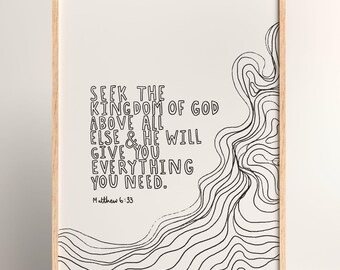 SEEK THE
KINGDOM OF GOD
ABOVE ALL
ELSE & HE WILL
GIVE YOU
EVERYTHING
YOU NEED.
Matthew 6:33